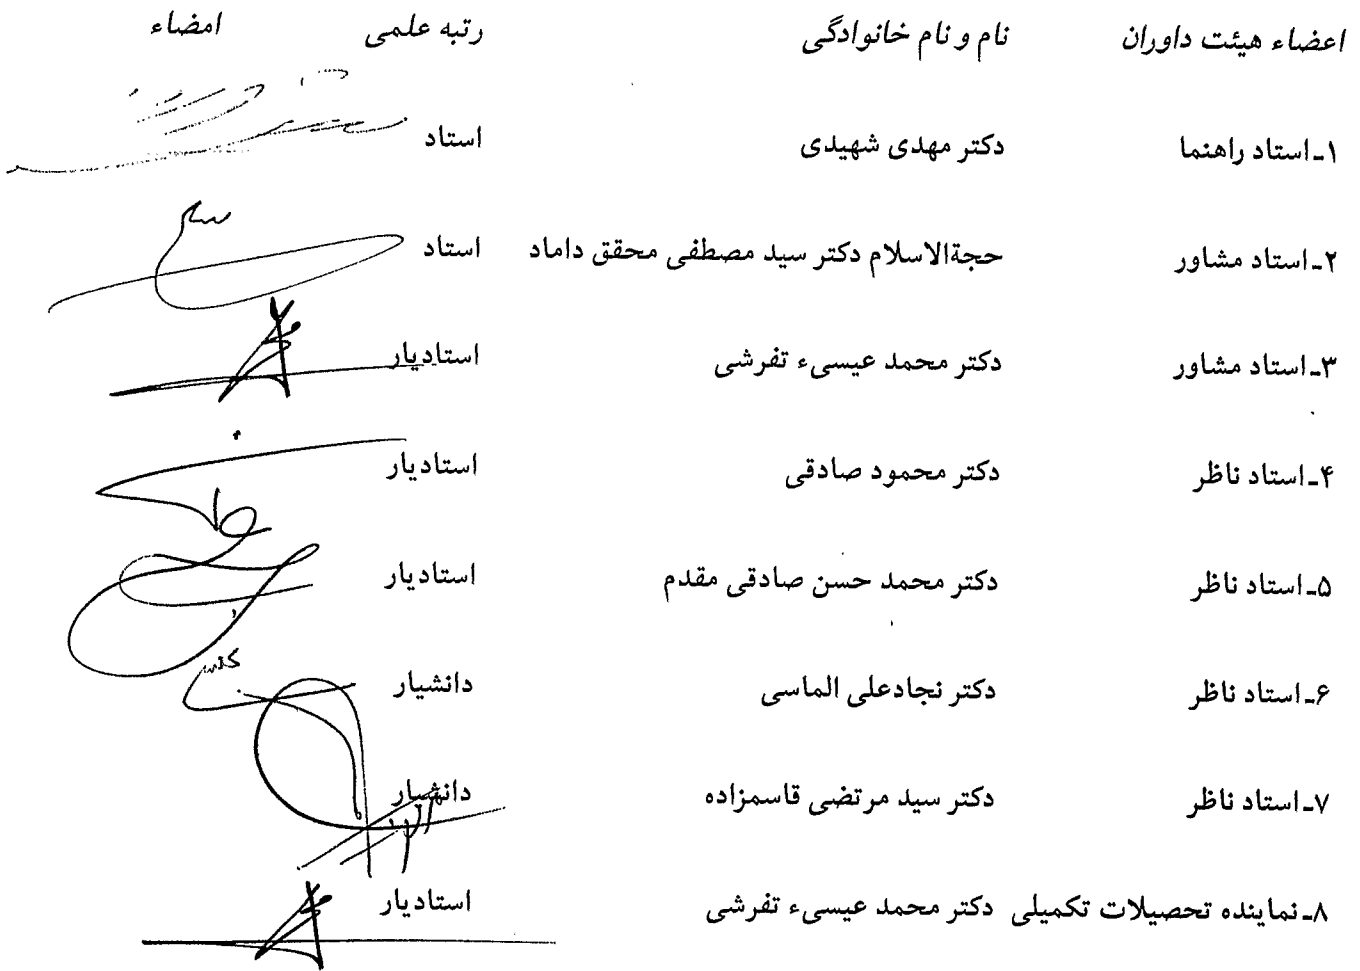 اعضاء هیئت داوران نام و نام خانوادگی رتبه علمی امضاء
۱ـ استاد راهنما دکتر مهدی شهیدی استاد
۲ـ استاد مشاور حجةالاسلام دکتر سید مصطفی محقق داماد استاد
۳ـ استاد مشاور دکتر محمد عیسیء تفرشی استادیار
۴ـ استاد ناظر دکتر محمود صادقی استادیار
۵ـ استاد ناظر دکتر محمد حسن صادقی مقدم استادیار
۶ـ استاد ناظر دکتر نجادعلی الماسی دانشیار
۷ـ استاد ناظر دکتر سید مرتضی قاسمزاده دانشیار
۸ـ نماینده تحصیلات تکمیلی دکتر محمد عیسیء تفرشی استادیار